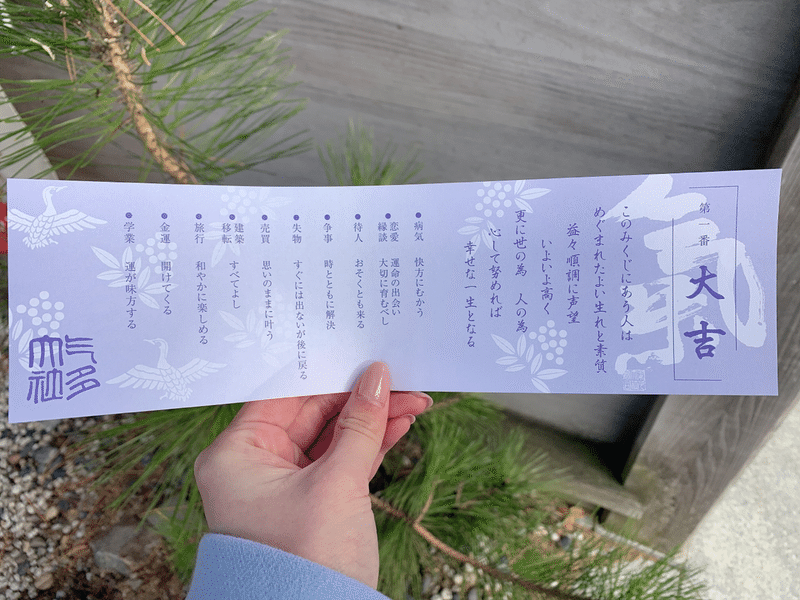 第一番
大吉
このみくじにあう人は
めぐまれたよい生れと素質
益々順調に声望
いよいよ高く
更に世の為　人の為
心して努めれば
幸せな一生となる
●病気　快方にむかう
●恋愛　運命の出会い
縁談　大切に育むべし
●待人　おそくとも来る
●争事　時とともに解決
●失物　すぐには出ないが後に戻る
●売買　思いのままに叶う
●建築　すべてよし
移転
●旅行　和やかに楽しめる
●金運　開けてくる
●学業　運が味方する
氣多
大社
氣